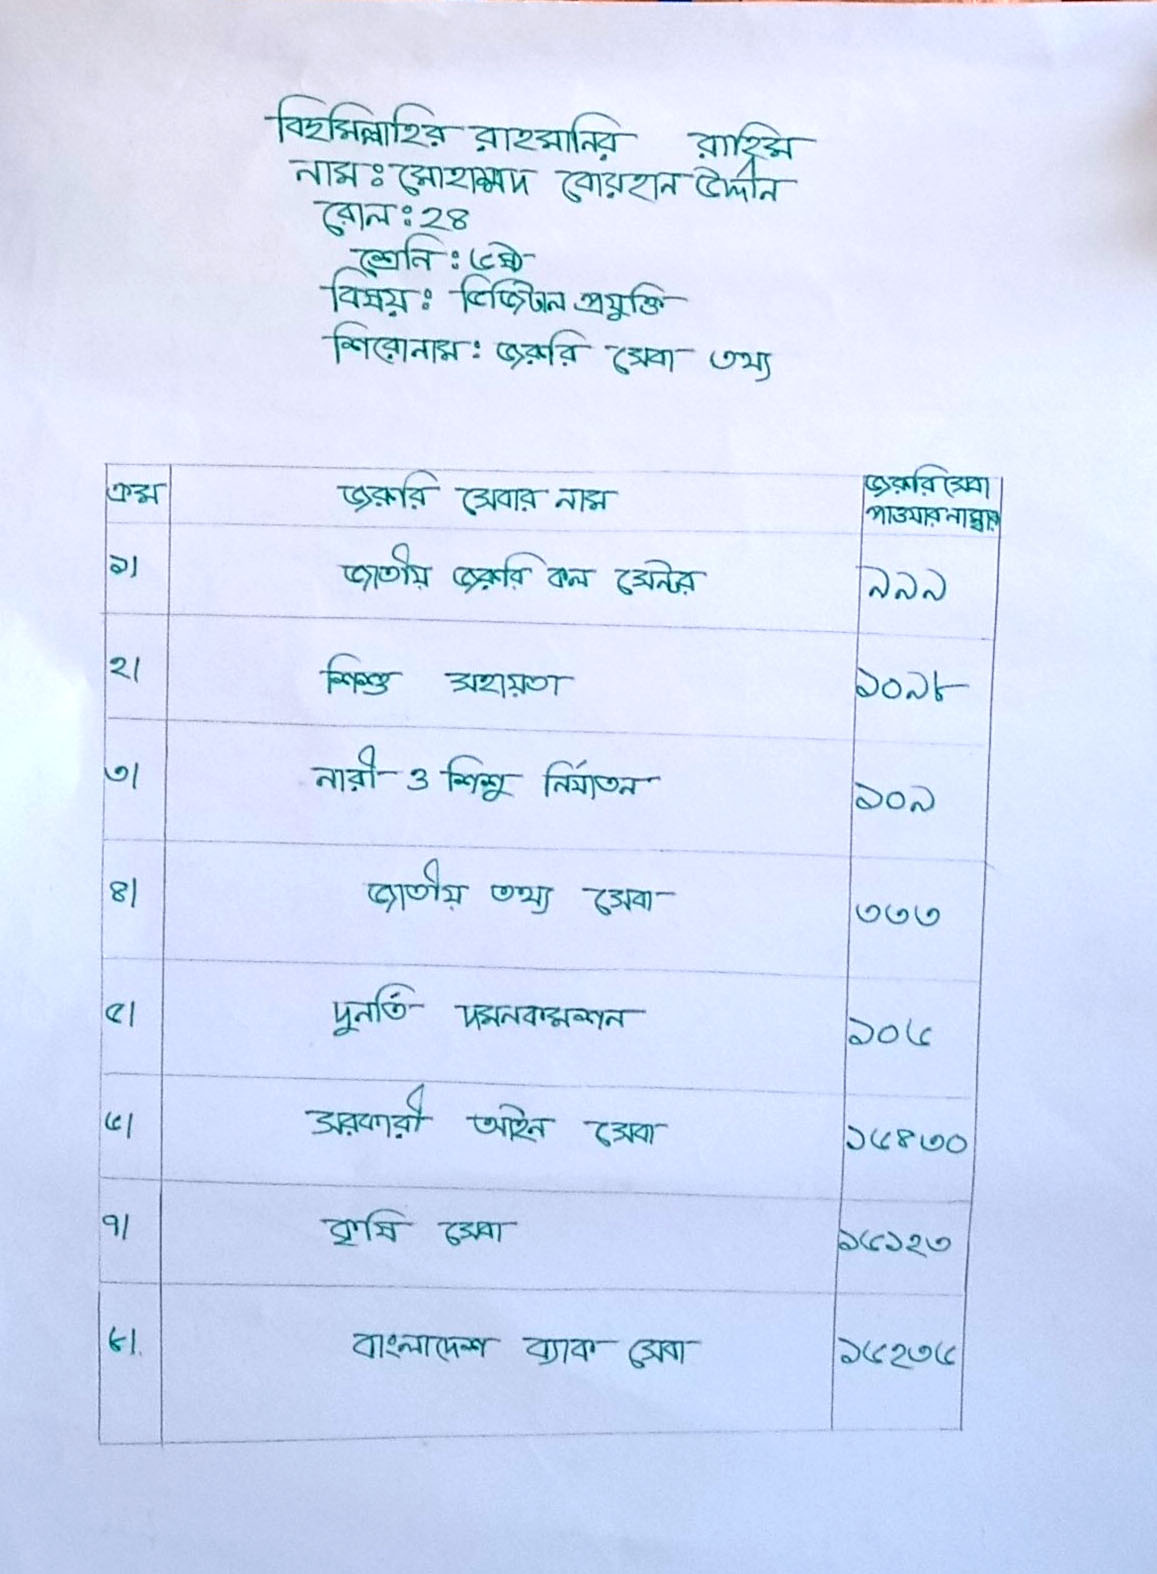 বিছমিল্লাহির রাহমানির রাহিম
নাম : মোহাম্মদ বোরহান উদ্দীন
রোল : ২৪
শ্রেনি : ৬ষ্ঠ
বিষয় : ডিজিটাল প্রযুক্তি
শিরোনাম : জরুরি সেবা তথ্য
ক্রম জরুরি সেবার নাম জরুরি সেবা
পাওয়ার নাম্বার
১। জাতীয় জরুরি কল সেন্টার ৯৯৯
২। শিশু সহায়তা ১০৯৮
৩। নারী ও শিশু নির্যাতন ১০৯
৪। জাতীয় তথ্য সেবা ৩৩৩
৫। দুনর্তি দমনকমশন ১০৬
৬। সরকারী আইন সেবা ১৬৪৩০
৭। কৃষি সেবা ১৬১২৩
৮। বাংলাদেশ ব্যাক সেবা ১৬২৩৬